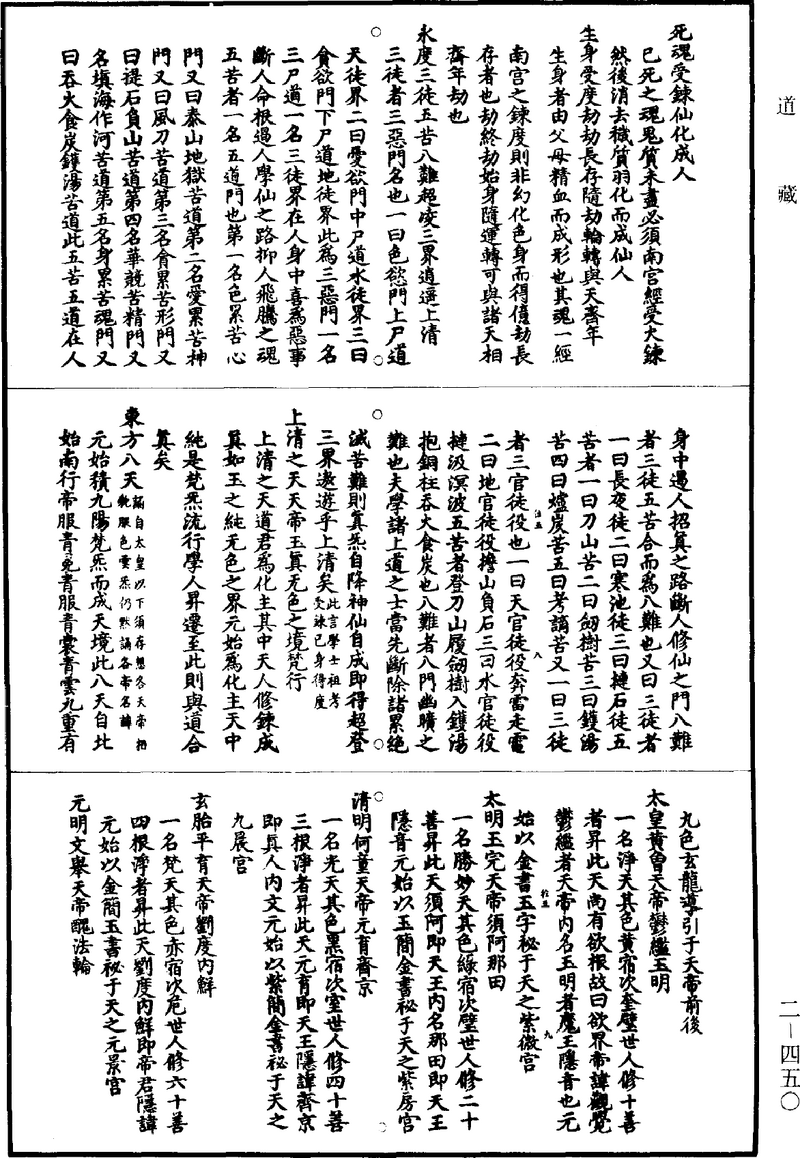 道藏
死魂受鍊仙化成人
已死之魂鬼質未盡必須南宮經受火鍊
然後消去穢質羽化而成仙人
生身受度劫劫長存隨劫輪轉與天齊年
生身者由父母精血而成形也其魂一經
南宮之鍊度則非幻化色身而得億劫長
存者也劫終劫始身隨運轉可與諸天相
齊年劫也
永度三徒五苦八難超凌三界逍遥上清
三徒者三惡門名也一曰色慾門上尸道
天徒界二曰愛欲門中尸道水徒界三曰
貪欲門下尸道地徒界此為三惡門一名
三尸道一名三徒界在人身中喜為惡事
斷人命根遏人學仙之路抑人飛騰之魂
五苦者一名五道門也第一名色累苦心
門又曰泰山地獄苦道第二名愛累苦神
門又曰風刀苦道第三名貪累苦形門又
曰提石負山苦道第四名華競苦精門又
名塡海作河苦道第五名身累苦魂門又
曰吞火食炭鑊湯苦道此五苦五道在人
身中遏人招真之路斷人修仙之門八難
者三徒五苦合而為八難也又曰三徒者
一曰長夜徒二曰寒池徒三曰摙石徒五
苦者一曰刀山苦二曰劒樹苦三曰鑊湯
苦四曰爐炭苦五曰考謫苦又一曰三徒
者三官徒役也一曰天官徒役奔雷走電
二曰地官徒役擔山負石三曰水官徒役
摙汲溟波五苦者登刀山履劒樹入鑊湯
抱銅柱吞火食炭也八難者八門幽曠之
難也夫學諸上道之士當先斷除諸累絕
滅苦難則真炁自降神仙自成即得超登
三界遨遊乎上清矣此言學士祖考受鍊已身得度
上清之天天帝玉真无色之境梵行
上清之天道君為化主其中天人修鍊成
真如玉之純无色之界元始為化主天中
純是梵炁流行學人昇遷至此則與道合
真矣
東方八天誦自太皇以下須存想各天帝相貌服色雲炁仍默誦各帝名諱
元始積九陽梵炁而成天境此八天自北
始南行帝服青冕青服青裳青雲九重有
九色玄龍導引于天帝前後
太皇黄曾天帝鬱繿玉明
一名淨天其色黄宿次奎壁世人修十善
者昇此天尚有欲根故曰欲界帝諱觀覺
鬱繿者天帝内名玉明者魔王隱音也元
始以金書玉字秘于天之紫微宫
太明玉完天帝須阿那田
一名勝妙天其色綠宿次壁世人修二十
善昇此天須阿即天王内名那田即天王
隱音元始以玉簡金書祕于天之紫房宫
清明何童天帝元育齊京
一名光天其色黑宿次室世人修四十善
三根淨者昇此天元育即天王隱諱齊京
即真人内文元始以紫簡金書祕于天之
九晨宫
玄胎平育天帝劉度内鮮
一名梵天其色赤宿次危世人修六十善
四根淨者昇此天劉度内鮮即帝君隱諱
元始以金簡玉書祕于天之元景宫
元明文舉天帝醜法輪
二－四五〇